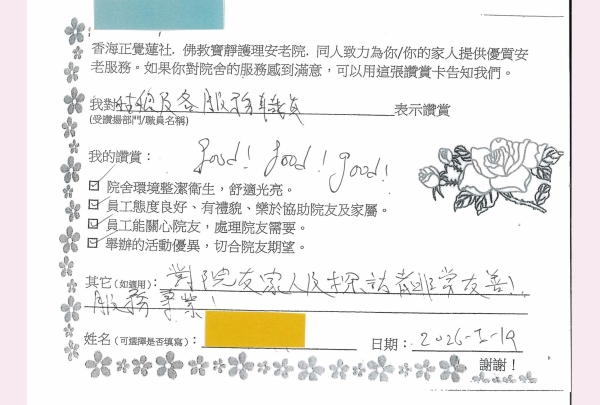 香海正覺蓮社．佛教寶靜護理安老院．同人致力為你/你的家人提供優質安
老服務。如果你對院舍的服務感到滿意，可以用這張讚賞卡告知我們。
我對 及各服務職員 表示讚賞
(受讚揚部門/職員名稱)
我的讚賞： Good! Good! Good!
☑ 院舍環境整潔衛生，舒適光亮。
☑ 員工態度良好、有禮貌、樂於協助院友及家屬。
☑ 員工能關心院友，處理院友需要。
☑ 舉辦的活動優異，切合院友期望。
其它 (如適用)： 對院友家人及探訪者非常友善！
服務專業！
姓名 (可選擇是否填寫)： 日期： 2026-1-19
謝謝！